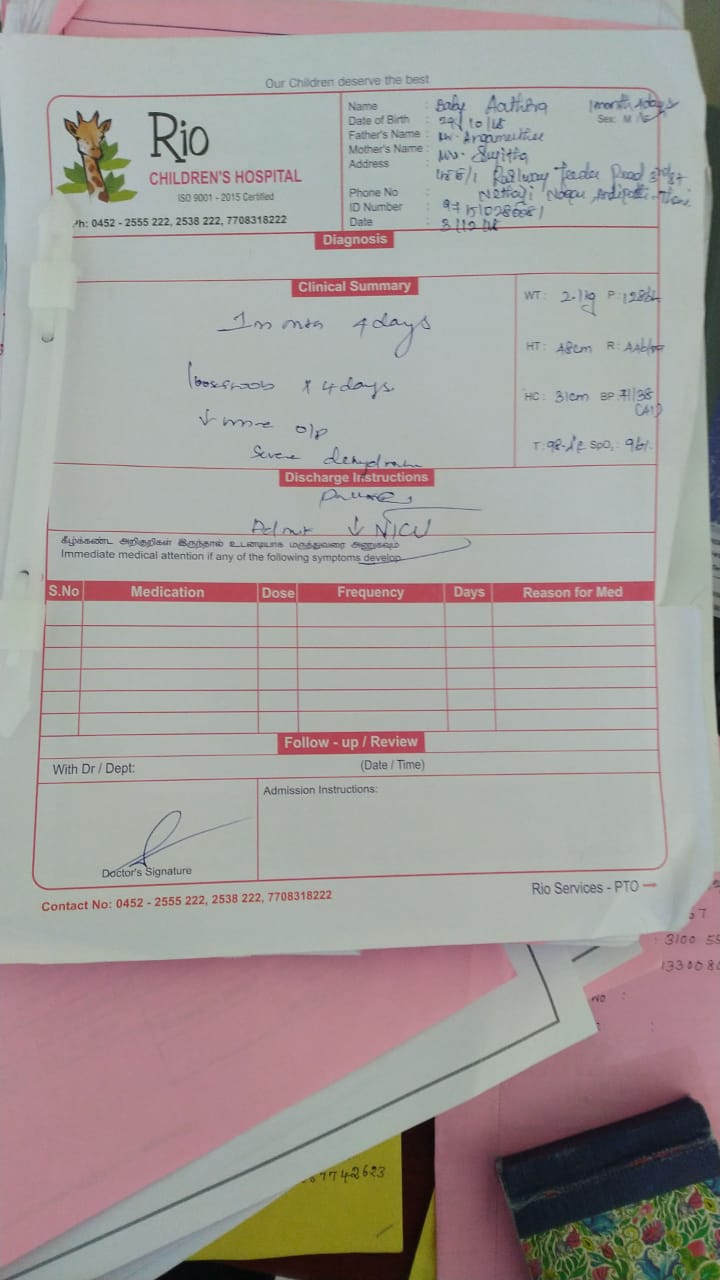 Our Children deserve the best
Rio
CHILDREN'S HOSPITAL
ISO 9001 - 2015 Certified
Ph: 0452 - 2555 222, 2538 222, 7708318222
Name : Baby Aathira 1month 4days
Date of Birth : 29/10/18 Sex: M / F
Father's Name : Mr. Angamuthu
Mother's Name : Mrs. Sujitha
Address : Railway Feeder Road
Nethaji Nagar,
Phone No :
ID Number :
Date : 3/12/18
Diagnosis
Clinical Summary
4 days
x 4 days
↓ o/p
Severe dehydration
WT: 2.1kg P:
HT: 48cm R:
HC: 31cm BP: 71/38
T: SpO₂:
Discharge Instructions
Admit ↓ NICU
கீழ்க்கண்ட அறிகுறிகள் இருந்தால் உடனடியாக மருத்துவரை அணுகவும்
Immediate medical attention if any of the following symptoms develop
S.No Medication Dose Frequency Days Reason for Med
Follow - up / Review
With Dr / Dept: (Date / Time)
Admission Instructions:
Doctor's Signature
Rio Services - PTO
Contact No: 0452 - 2555 222, 2538 222, 7708318222
3100 55
133008
NO :
7742623